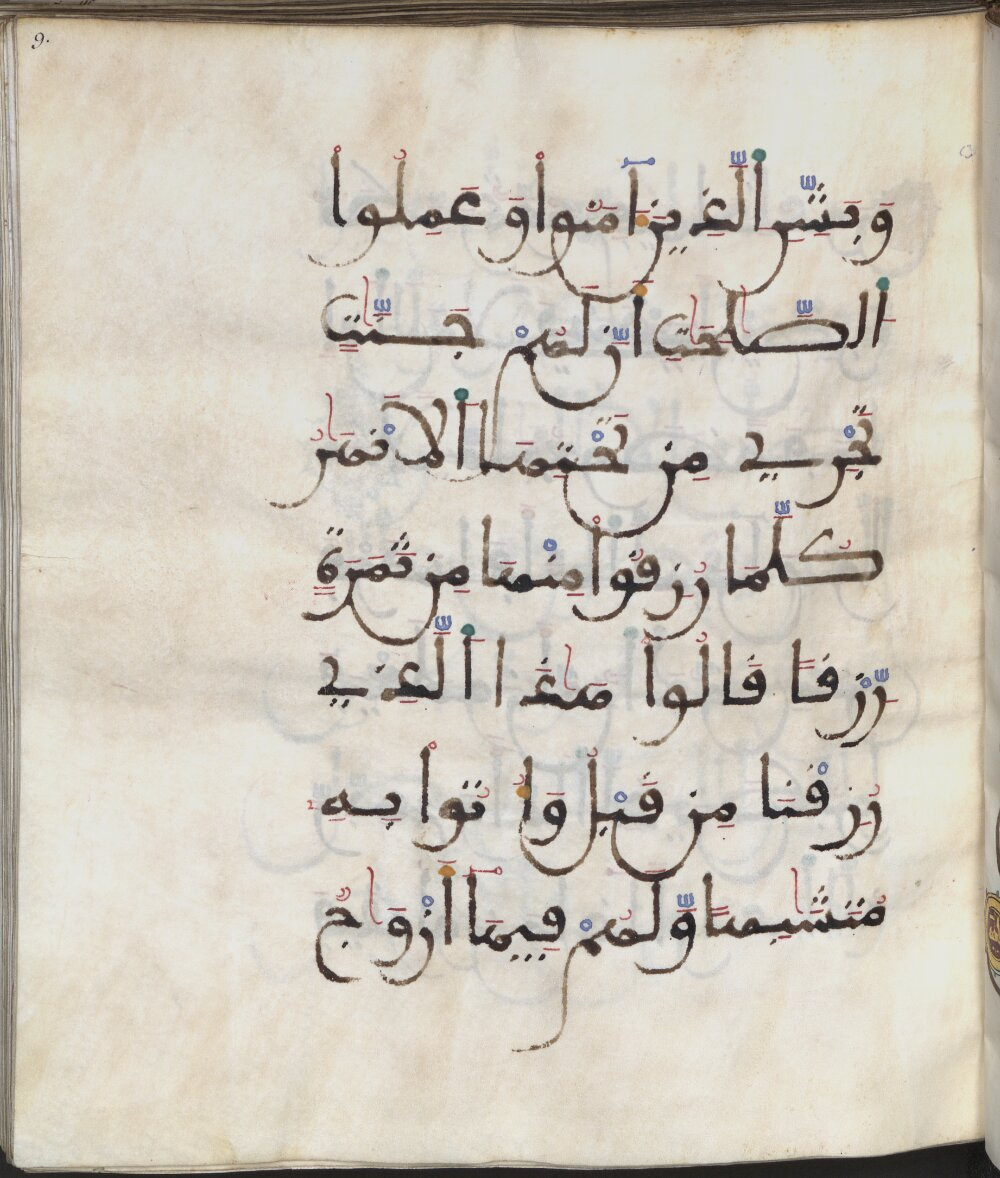 9.
وَبَشِّرِ الَّذِينَ ءَامَنُوا وَعَمِلُوا
الصَّٰلِحَٰتِ أَنَّ لَهُمْ جَنَّٰتٍ
تَجْرِي مِن تَحْتِهَا الَانْهَٰرُ
كُلَّمَا رُزِقُوا مِنْهَا مِن ثَمَرَةٍ
رِّزْقاً قَالُوا هَٰذَا الَّذِي
رُزِقْنَا مِن قَبْلُ وَأُتُوا بِهِ
مُتَشَٰبِهاً وَّلَهُمْ فِيهَا أَزْوَٰجٌ